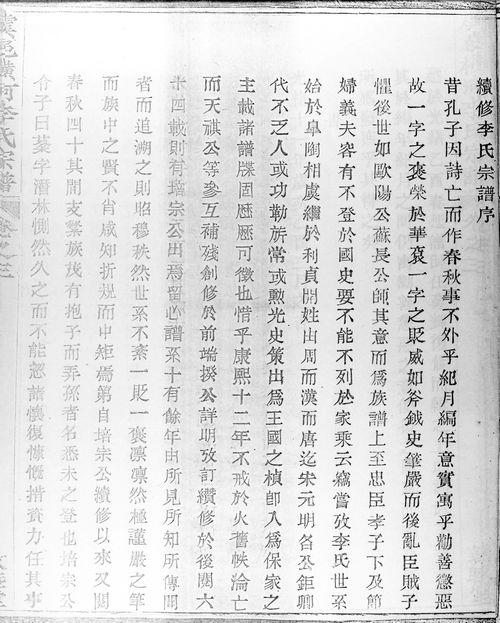 續修李氏宗譜序
昔孔子因詩亡而作春秋事不外乎紀月編年意實寓乎勸善懲惡
故一字之褒榮於華袞一字之貶威如斧鉞史筆嚴而後亂臣賊子
懼後世如歐陽公蘇長公師其意而為族譜上至忠臣孝子下及節
婦義夫容有不登於國史要不能不列於家乘云竊嘗攷李氏世系
始於臯陶相虞繼於利貞開姓由周而漢而唐迄宋元明名公鉅卿
代不乏人或功勒旂常或勲光史策出為王國之楨卽入為保家之
主載諸譜牒固歷歷可徵也惜乎康熙十二年不戒於火舊帙淪亡
而天祺公等參互補殘創修於前端揆公詳明攷訂纘修於後閱六
十四載則有培宗公出焉留心譜系十有餘年由所見所知所傳聞
者而追溯之則昭穆秩然世系不紊一貶一褒凜凜然極謹嚴之筆
而族中之賢不肖咸知折規而中矩焉第自培宗公續修以來又閱
春秋四十其間支繁族茂有抱子而弄孫者名悉未之登也培宗公
令子曰蓁字潛林惻然久之而不能恝諸懷復慷慨措資力任其事
李氏宗譜
卷之三